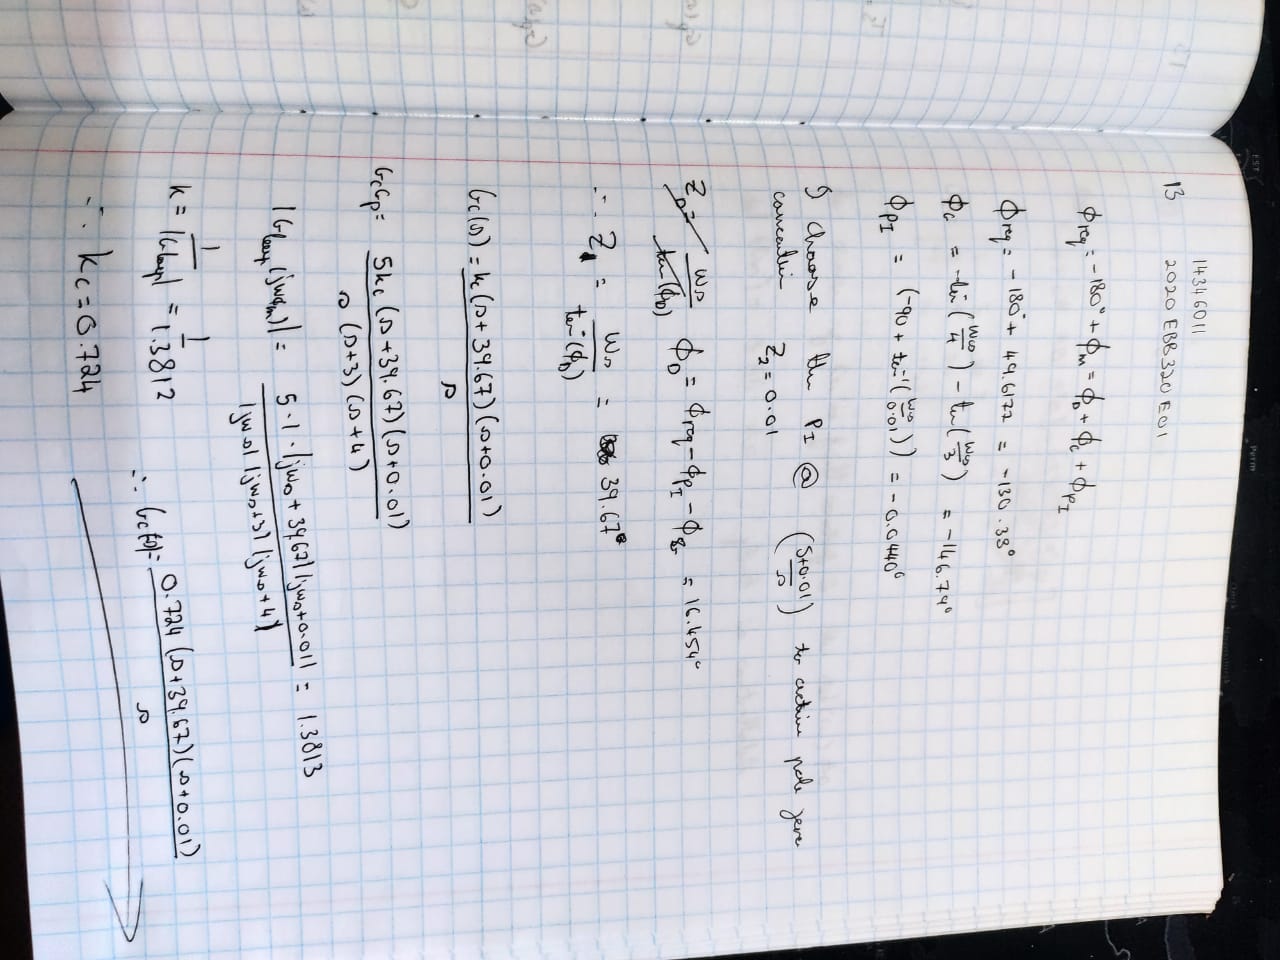 EST
Perm
14346011
13
2020 EBB320 E01
ϕreq = -180° + ϕm = ϕD + ϕc + ϕPI
ϕreq = -180° + 49.6177 = -130.33°
ϕG = -tan⁻¹(ωω/4) - tan⁻¹(ωω/3) = -146.74°
ϕPI = (-90 + tan⁻¹(ωω/0.01)) = -0.0440°
I choose the PI @ (S+0.01)/s to achive pole zero
cancelation Z₂ = 0.01
ZD = ωs/tan(ϕD) ϕD = ϕreq - ϕPI - ϕG = 16.454°
∴ Z₁ = ωs/tan(ϕD) = 39.67
Gc(s) = kc(s+39.67)(s+0.01)/s
GcGp = 5kc(s+39.67)(s+0.01)/s(s+3)(s+4)
|Gloop(jωϕm)| = 5·1·|jωs+39.67||jωs+0.01|/|jωs||jωs+3||jωs+4| = 1.3813
k = 1/|Gloop| = 1/1.3812
∴ Gc(s) = 0.724(s+39.67)(s+0.01)/s
∴ kc = 0.724